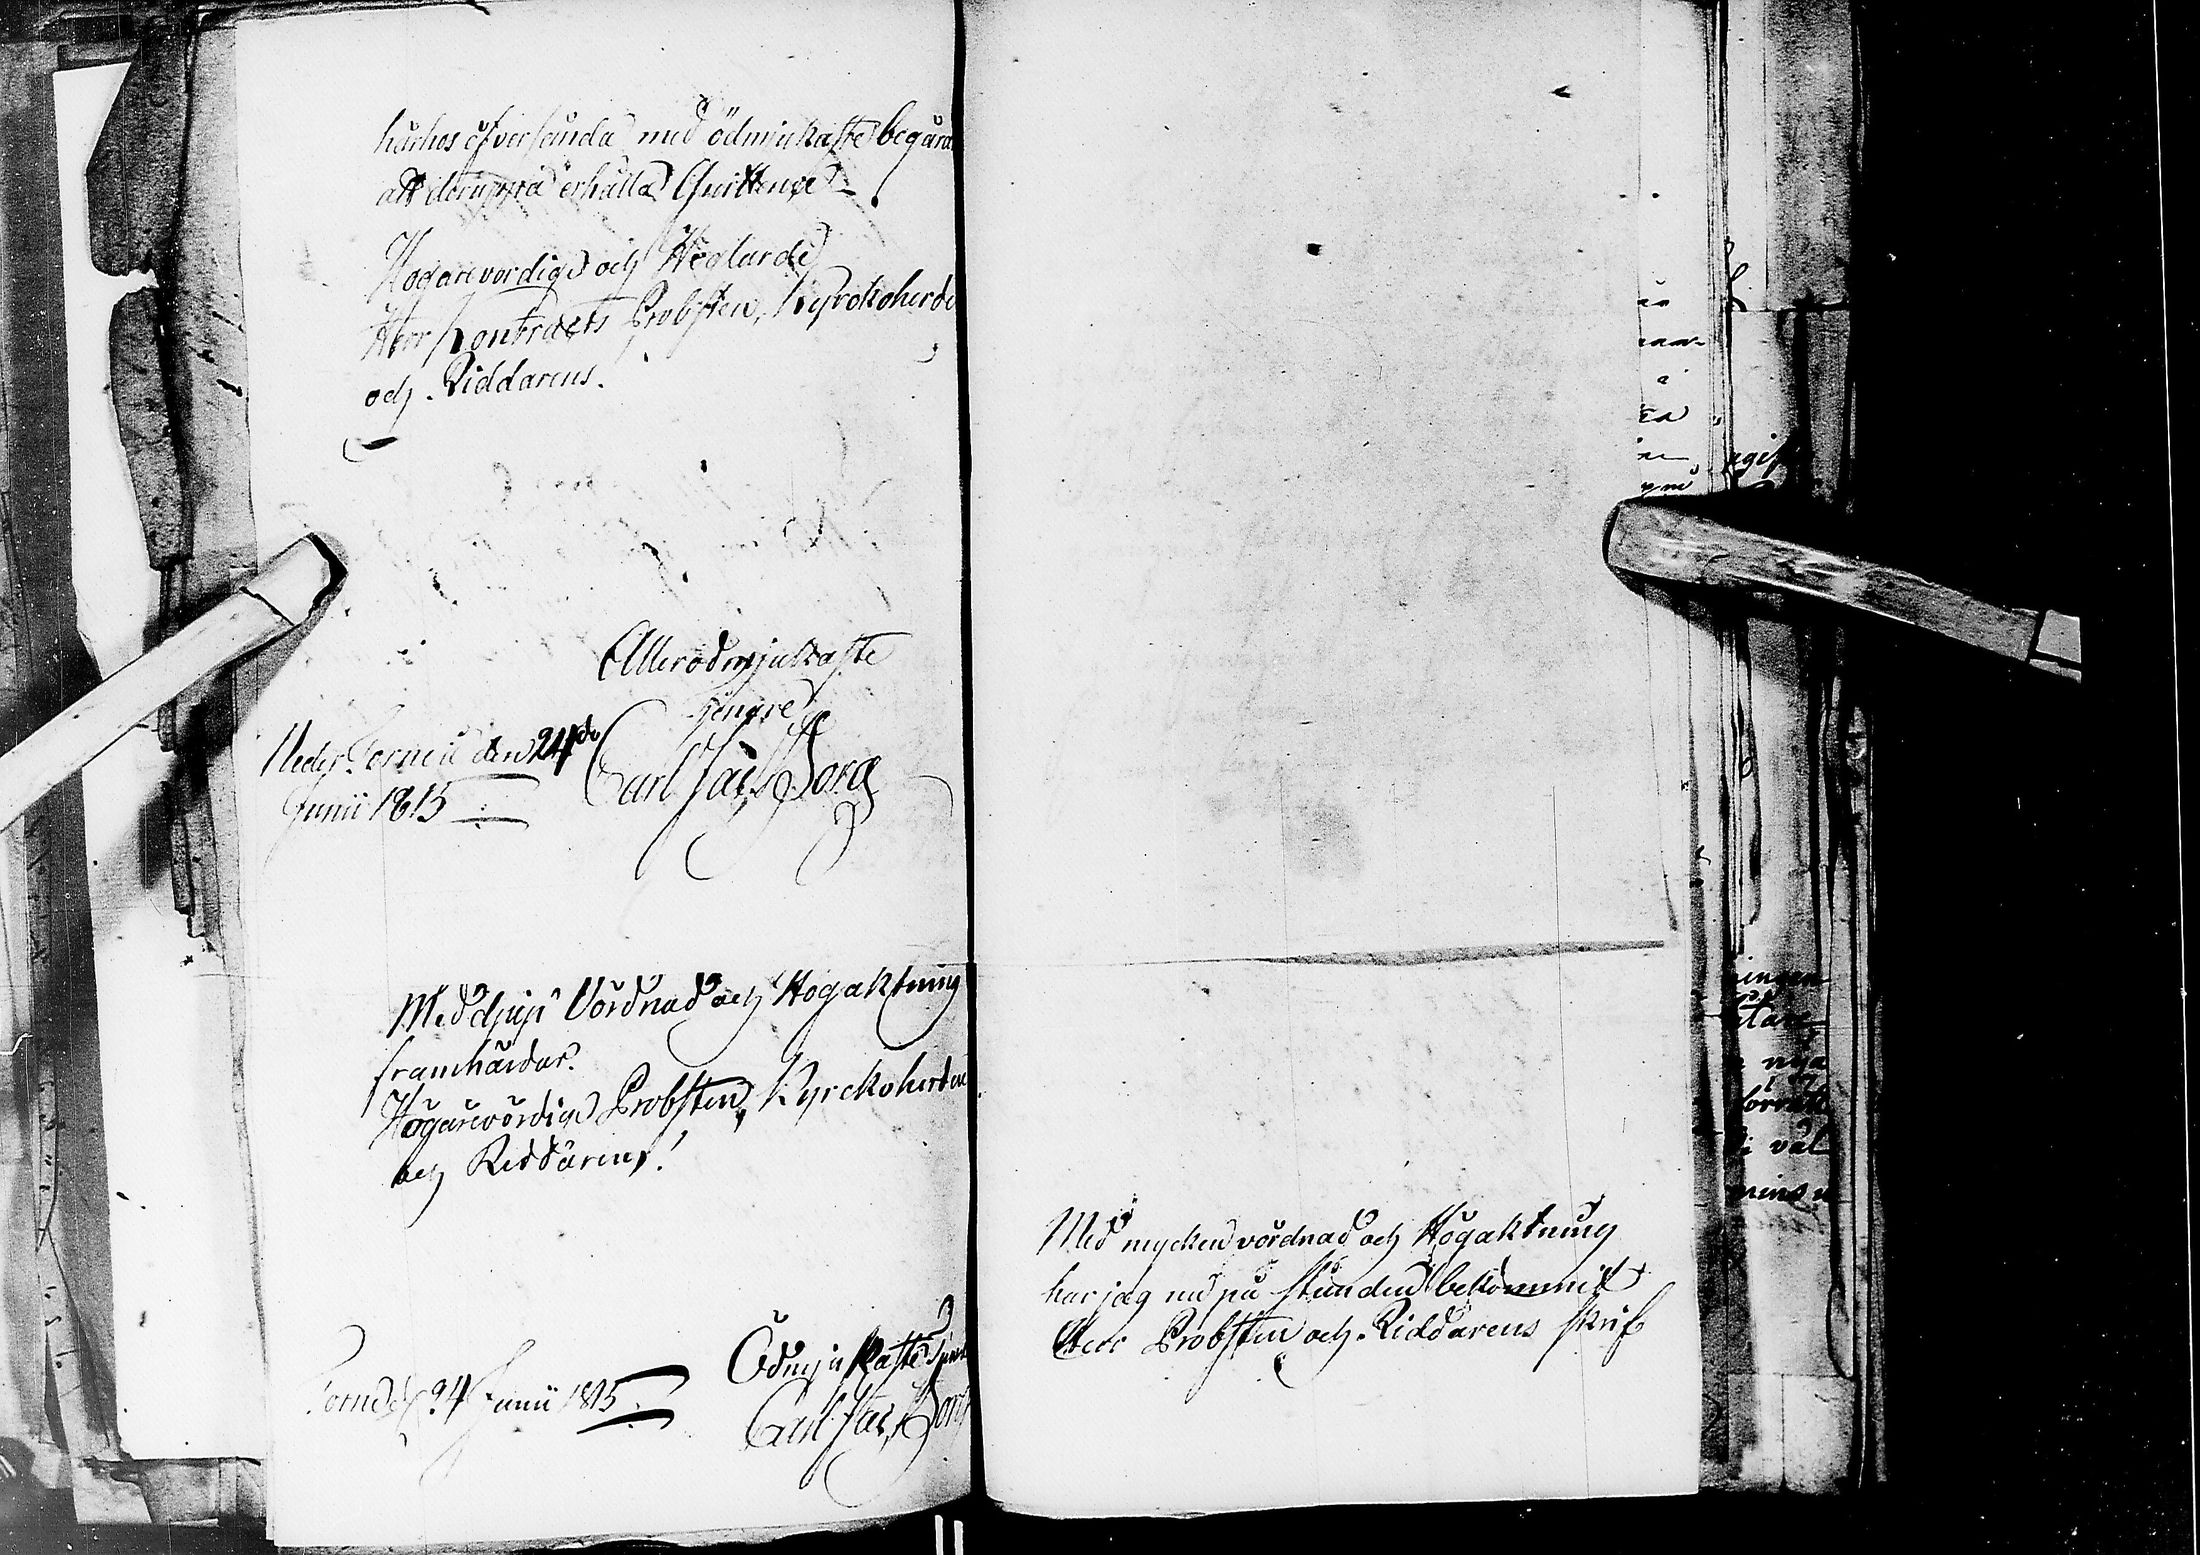 härhos öfversända med ödmjukaste begära
att deruppå erhålla Quittence
Högarevördige och Höglärde
Herr Kontracts Probsten, Kyrckoherde
och Riddarens.
Allerödmjukaste
tjenare
Carl Jac. Borg
Neder Torneå den 24de
Junii 1815
Med djup Vördnad och Högaktning
framhärdar.
Högarevördige Probsten, Kyrckoherden
och Riddarens!
Ödmjukaste tjenare
Carl Jac. Borg
Torneå d. 24 Junii 1815
Med mycken vördnad och Högaktning
har jag nu på stunden bekommit
Herr Probsten och Riddarens skrif